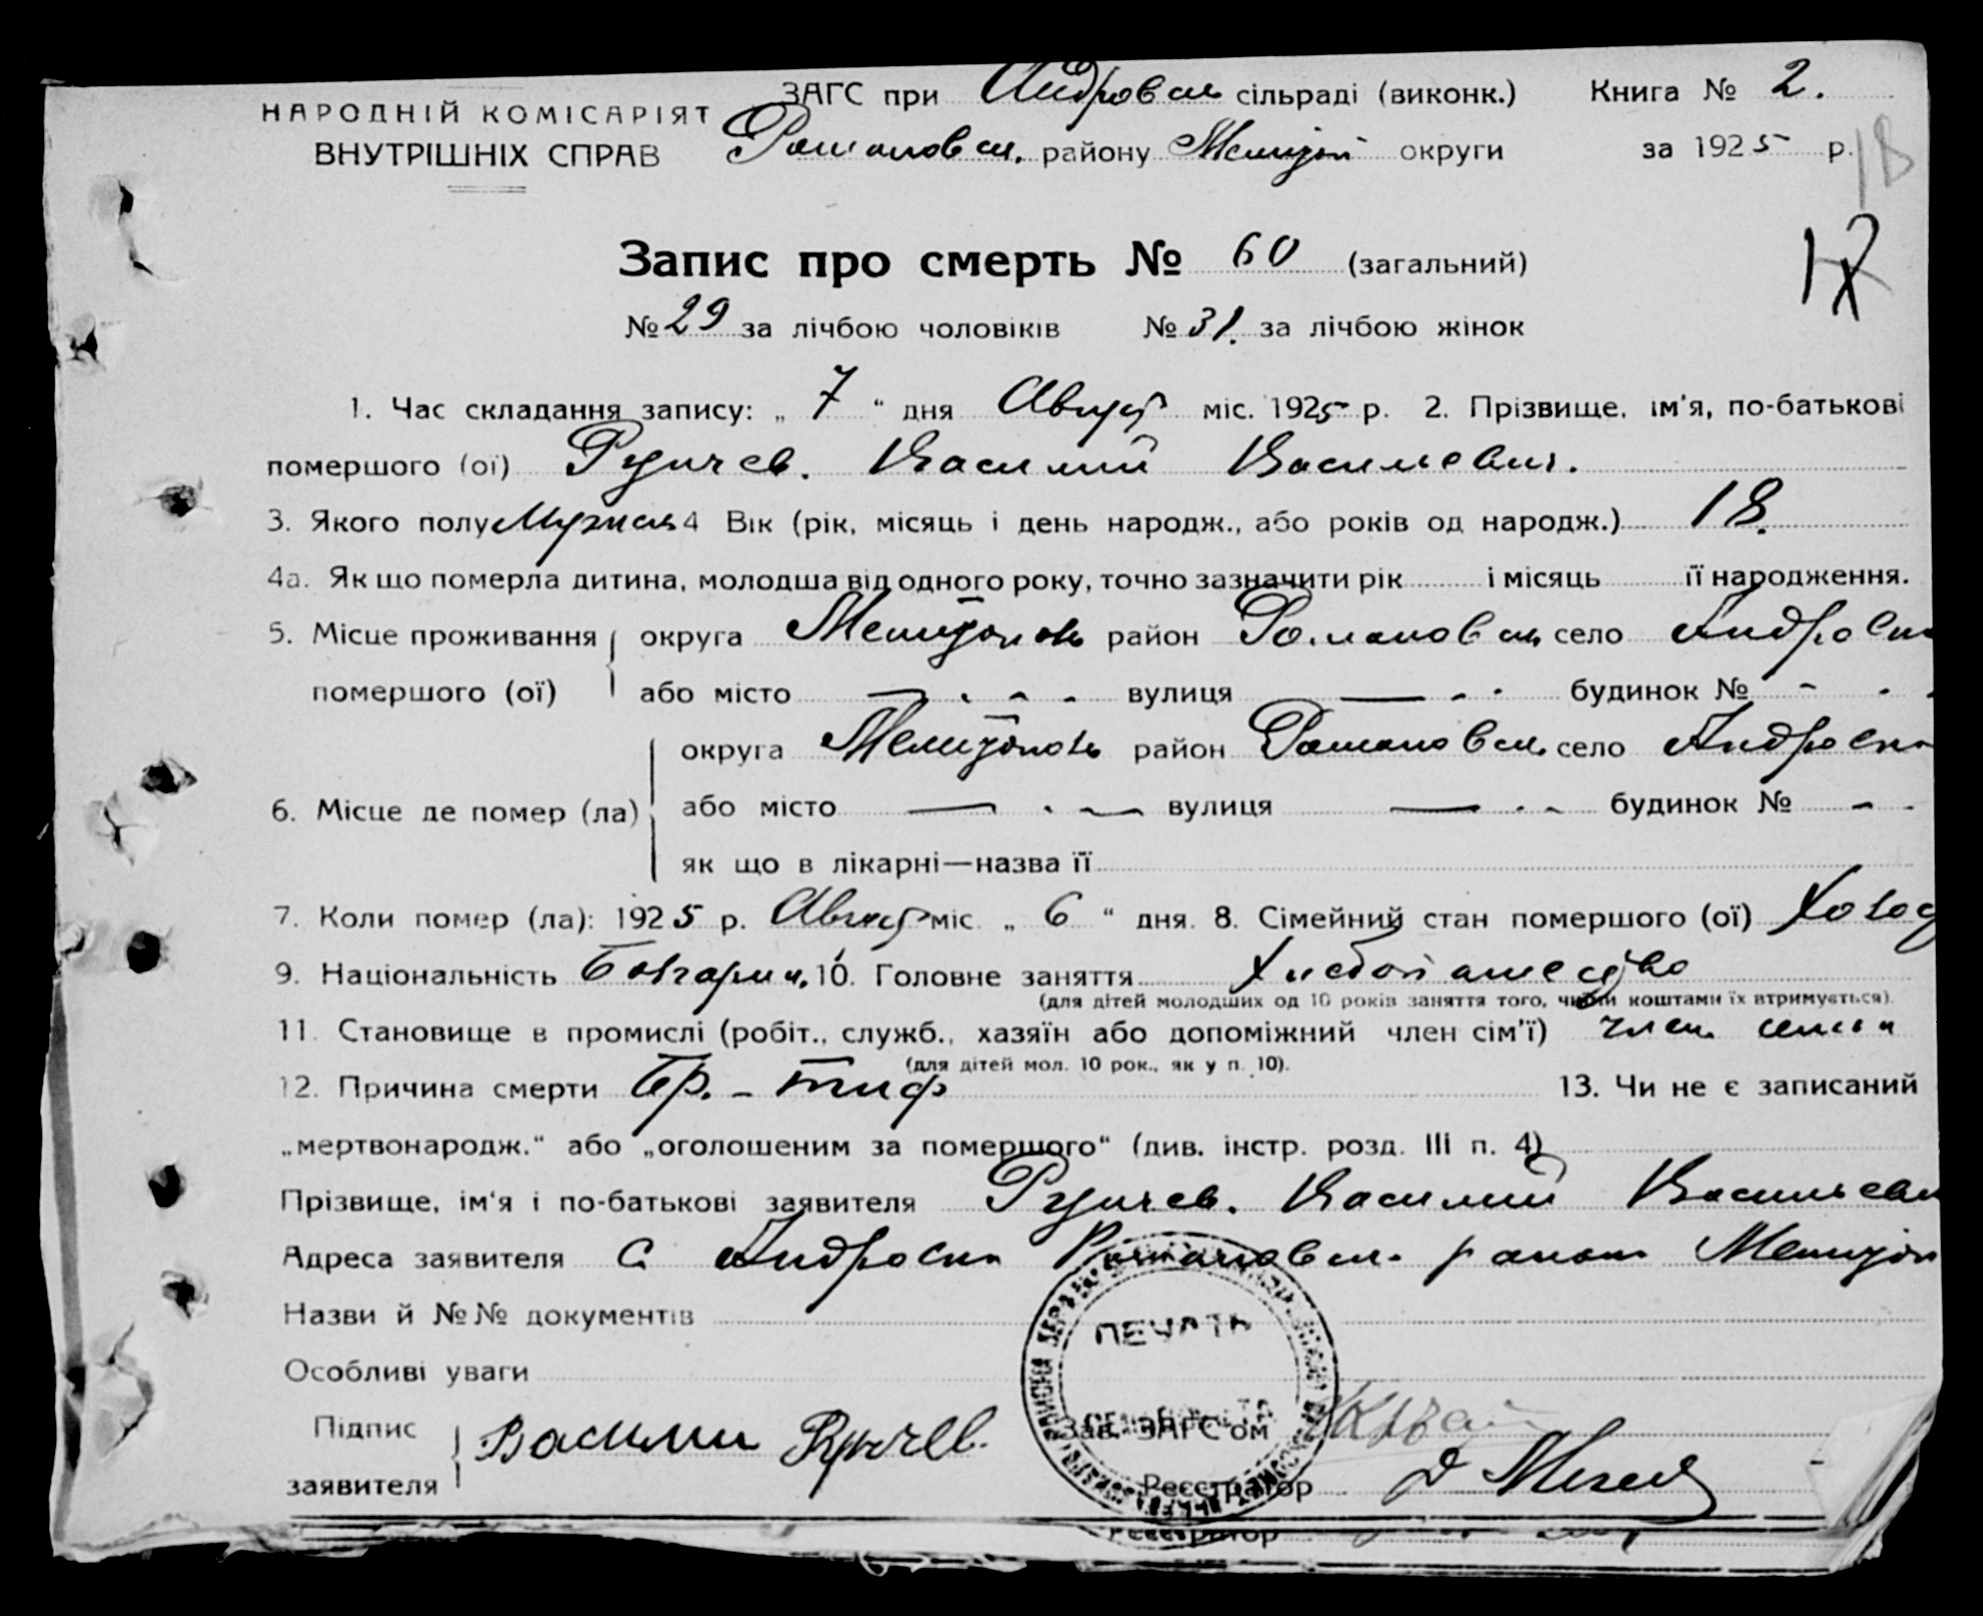 НАРОДНІЙ КОМІСАРІЯТ
ВНУТРІШНІХ СПРАВ
ЗАГС при Андровск сільраді (виконк.) Книга № 2.
Романовск. району Мелитоп округи за 1925 р.
18
Запис про смерть № 60 (загальний)
№ 29 за лічбою чоловіків № 31. за лічбою жінок
1. Час складання запису: „ 7 “ дня Август міс. 1925 р. 2. Прізвище, ім'я, по-батькові
помершого (ої) Василий Васильевич.
3. Якого полу Мужск 4 Вік (рік, місяць і день народж., або років од народж.) 18.
4а. Як що померла дитина, молодша від одного року, точно зазначити рік і місяць її народження.
5. Місце проживання округа Мелитополь район Романовск село Андровка
помершого (ої) або місто — вулиця — будинок № -
округа Мелитополь район Романовск село Андровка
6. Місце де помер (ла) або місто — вулиця — будинок № -
як що в лікарні—назва її
7. Коли помер (ла): 1925 р. Август міс. „ 6 “ дня. 8. Сімейний стан помершого (ої) Холос
9. Національність Болгарин. 10. Головне заняття Хлебопашество
(для дітей молодших од 10 років заняття того, чиїми коштами їх втримується).
11. Становище в промислі (робіт., служб., хазяїн або допоміжний член сім'ї) член семьи
(для дітей мол. 10 рок., як у п. 10).
12. Причина смерти Бр. - тиф 13. Чи не є записаний
„мертвонародж.“ або „оголошеним за помершого“ (див. інстр. розд. III п. 4)
Прізвище, ім'я і по-батькові заявителя Василий Васильевич
Адреса заявителя с Андровка Романовск. район Мелитоп
Назви й №№ документів
Особливі уваги
ПЕЧАТЬ
Підпис
заявителя Василий
Зав. ЗАГС'ом
Реєстратор
Реєстратор